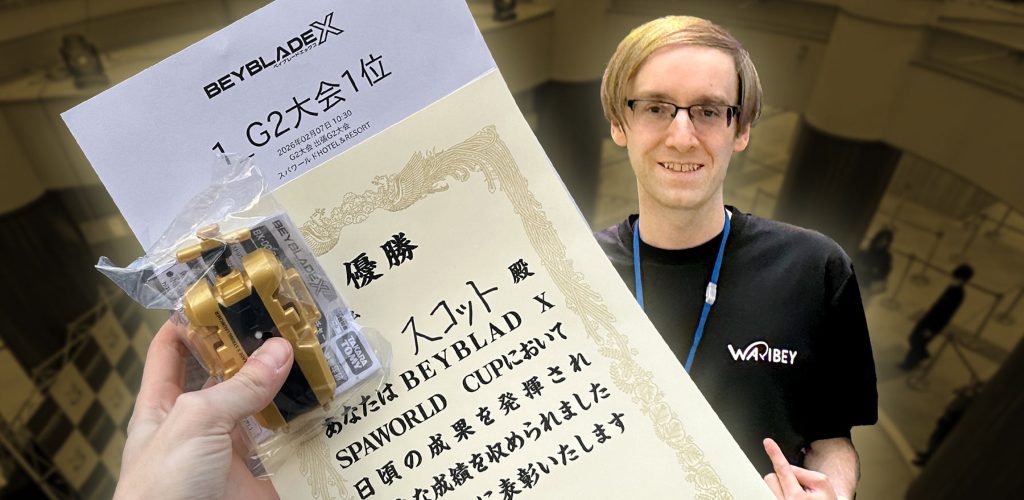 BEYBLADE X
ベイブレードエックス
1_G2大会1位
2026年02月07日 10:30
G2大会 出張G2大会
スパワールドHOTEL&RESORT
優勝
スコット 殿
あなたはBEYBLAD X
SPAWORLD CUPにおいて
日頃の成果を発揮され
な成績を収められました
に表彰いたします
BEYBLADE X
TAKARA
TOMY
WARIBEY